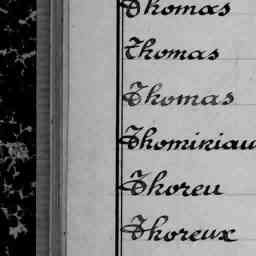 Thomas
Thomas
Thomas
Thominiau
Thoreu
Thoreux